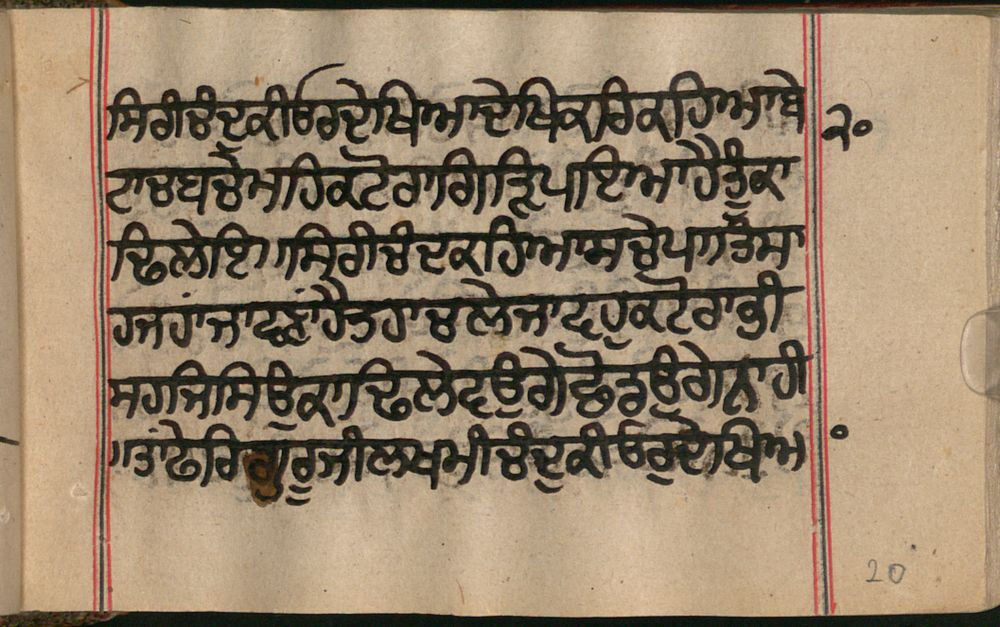 ਸਿਰੀਚੰਦਕੀਓਰਦੇਖਿਆਦੇਖਿਕਰਿਕਹਿਆਬੇ
ਟਾਚਬਚੇਮਹਿਕਟੋਰਾਗਿੜਿਪਾਇਆਹੈਤੂੰਕਾ
ਢਿਲੇਇ॥ਸਿਰੀਚੰਦਕਹਿਆਸਚੇਪਾਤਿਸਾ
ਹਜਹਾਂਜਾਵਣਾਹੈਤਹਾਚਲੇਜਾਵਹੁਕਟੋਰਾਕੀ
ਸਗਜਿਸਿਉਕਾਢਿਲੇਵਉਗੇਛੋਡਉਗੇਨਾਹੀ
॥ਤਾਂਫੇਰਿਗੁਰੂਜੀਲਖਮੀਚੰਦਕੀਓਰੁਦੇਖਿਆ
੨੦
20